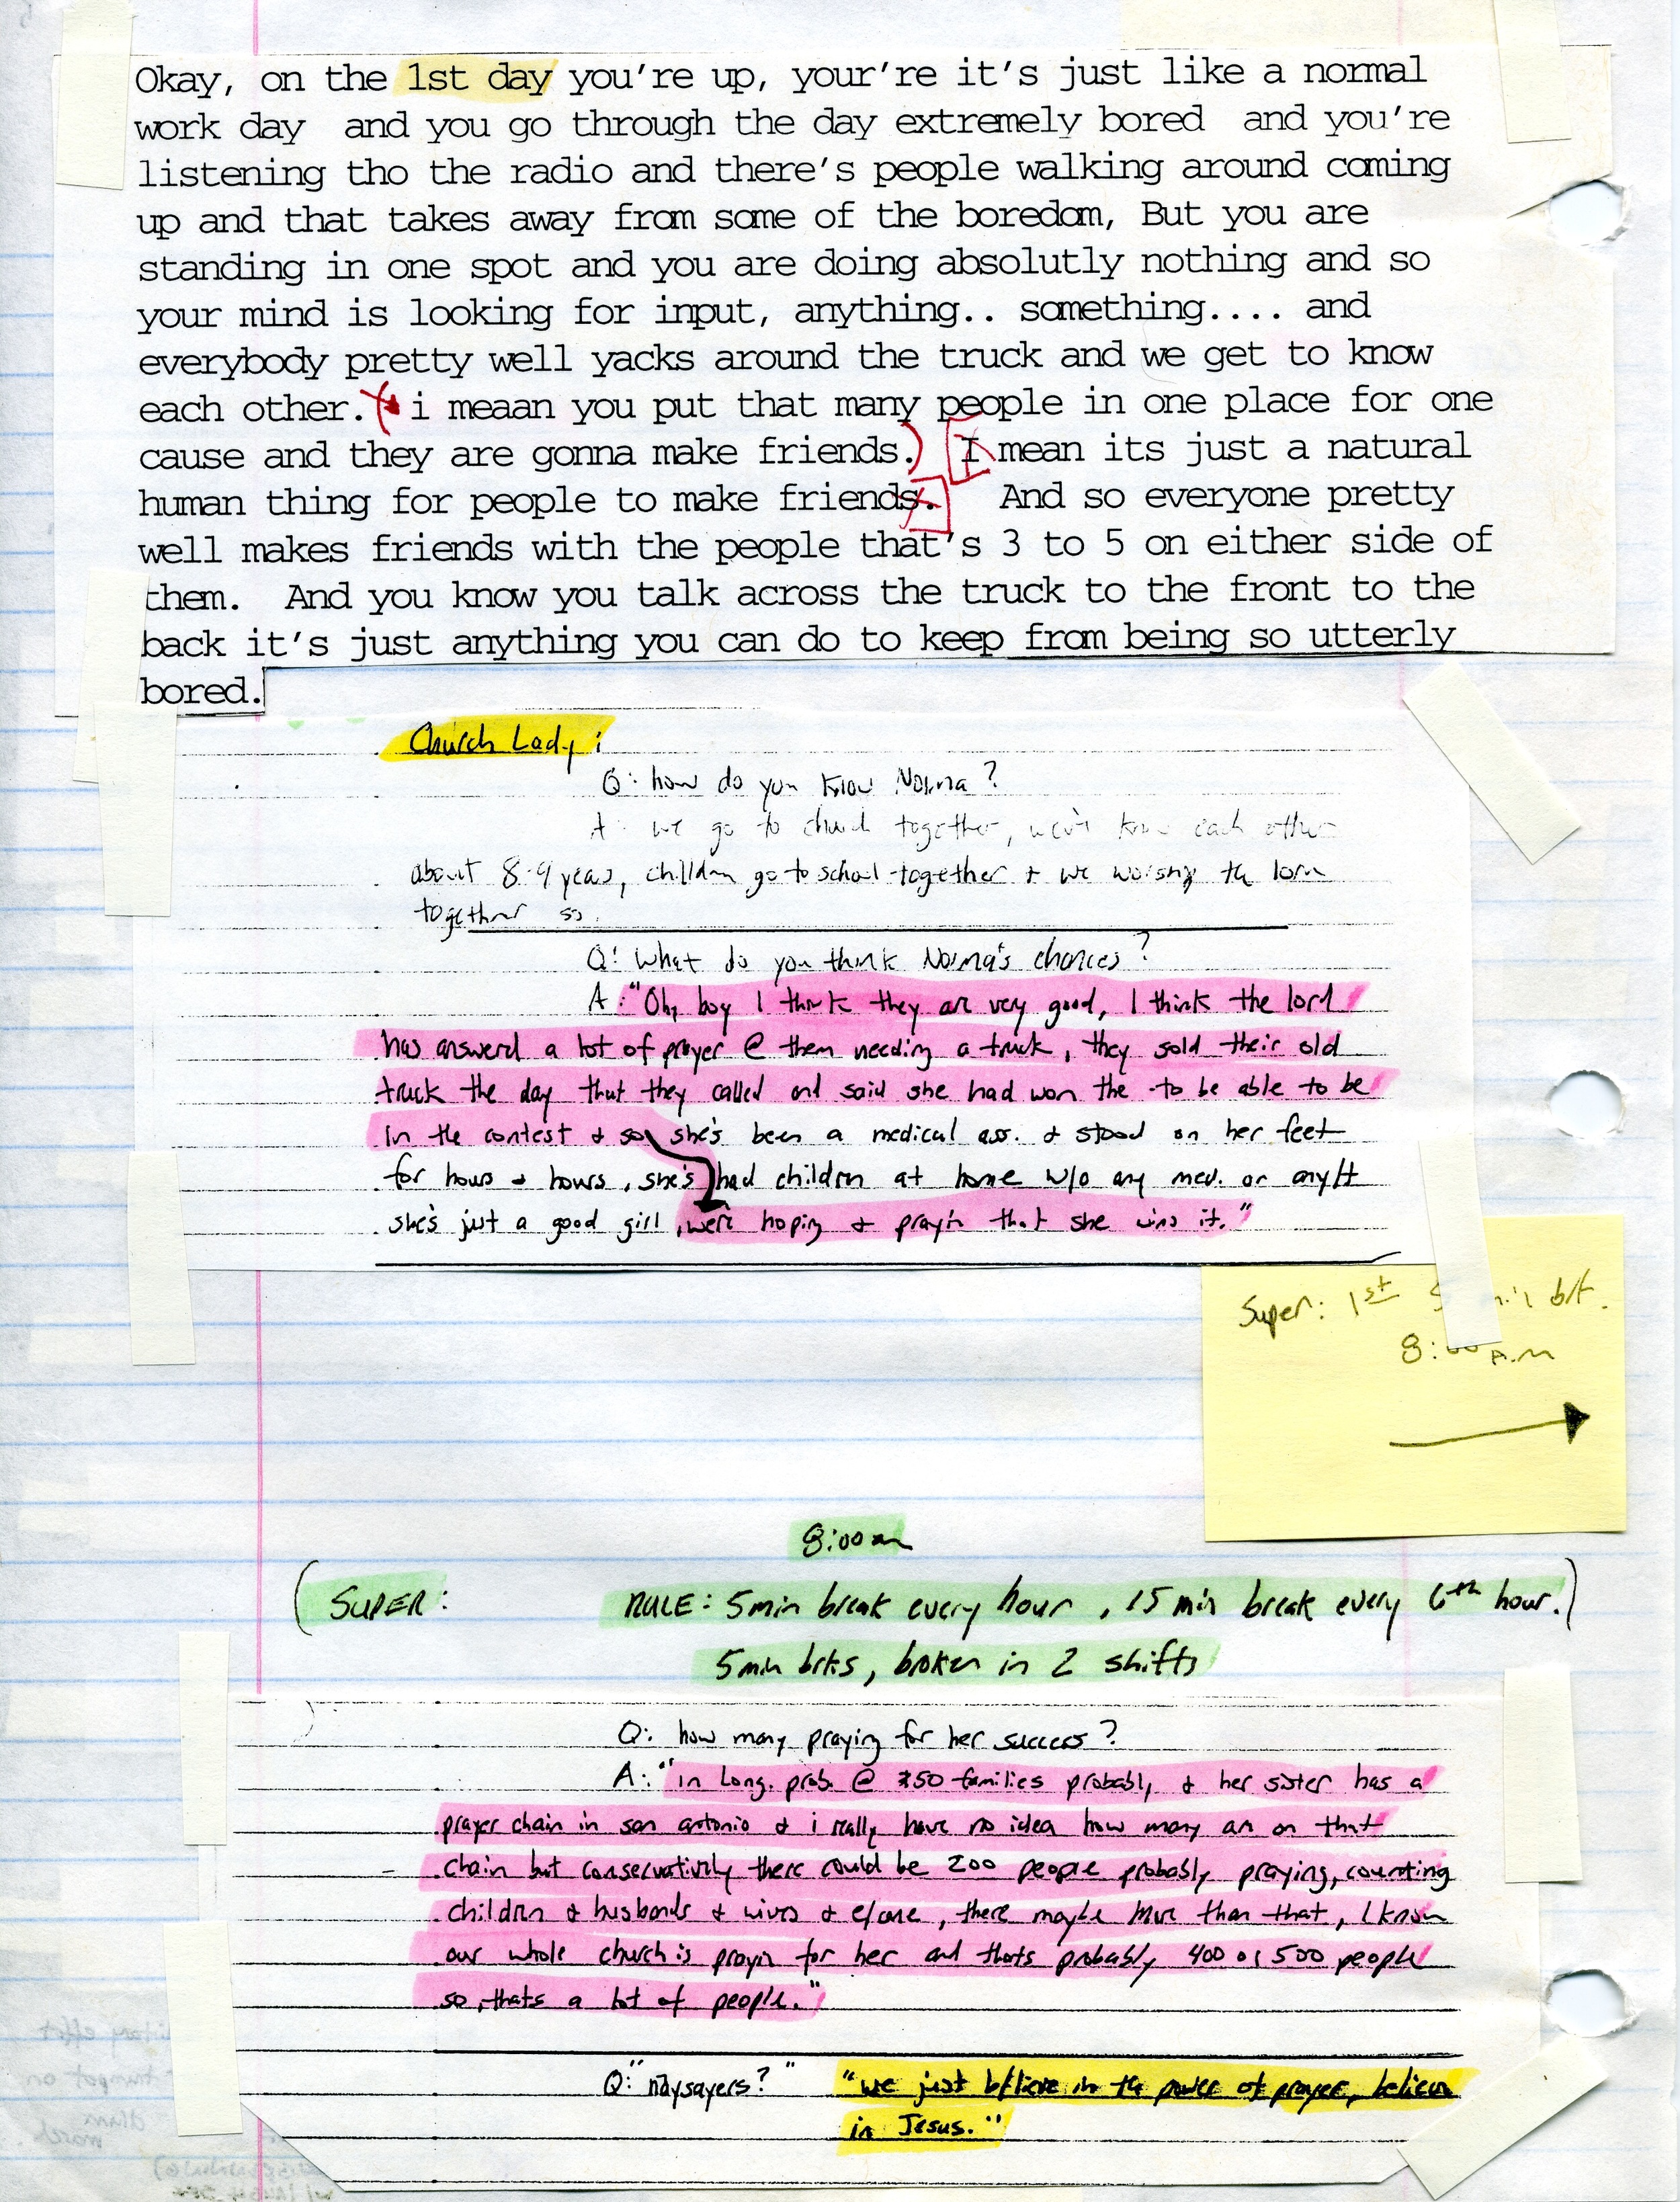 Okay, on the 1st day you're up, your're it's just like a normal
work day and you go through the day extremely bored and you're
listening tho the radio and there's people walking around coming
up and that takes away from some of the boredom, But you are
standing in one spot and you are doing absolutly nothing and so
your mind is looking for input, anything.. something.... and
everybody pretty well yacks around the truck and we get to know
each other. ( i meaan you put that many people in one place for one
cause and they are gonna make friends.) [I mean its just a natural
human thing for people to make friends.] And so everyone pretty
well makes friends with the people that's 3 to 5 on either side of
them. And you know you talk across the truck to the front to the
back it's just anything you can do to keep from being so utterly
bored.
Church Lady:
Q: how do you know Norma?
A: we go to church together, we've know each other
about 8-9 years, children go to school together + we worship the lord
together so.
Q: What do you think Norma's chances?
A: "Oh, boy I think they are very good, I think the lord
has answerd a lot of prayer @ them needing a truck, they sold their old
truck the day that they called and said she had won the -to be able to be
in the contest & so she's been a medical ass. & stood on her feet
for hours & hours, she's had children at home w/o any med. or
she's just a good girl, we're hoping & prayin that she wins it."
Super: 1st brk.
8:00 A.M
8:00am
(SUPER: RULE: 5min break every hour, 15 min break every 6th hour.)
5min brks, broken in 2 shifts
Q: how many praying for her success?
A: "in Long. prob. @ 50 families probably & her sister has a
prayer chain in san antonio & i really have no idea how many are on that
chain but conservatively there could be 200 people probably praying, counting
children & husbands & wives & e/one, there maybe more than that, I know
our whole church is prayin for her and thats probably 400 or 500 people
so, thats a lot of people."
Q: "naysayers?" "we just b/lieve in the power of prayer, believe
in Jesus."